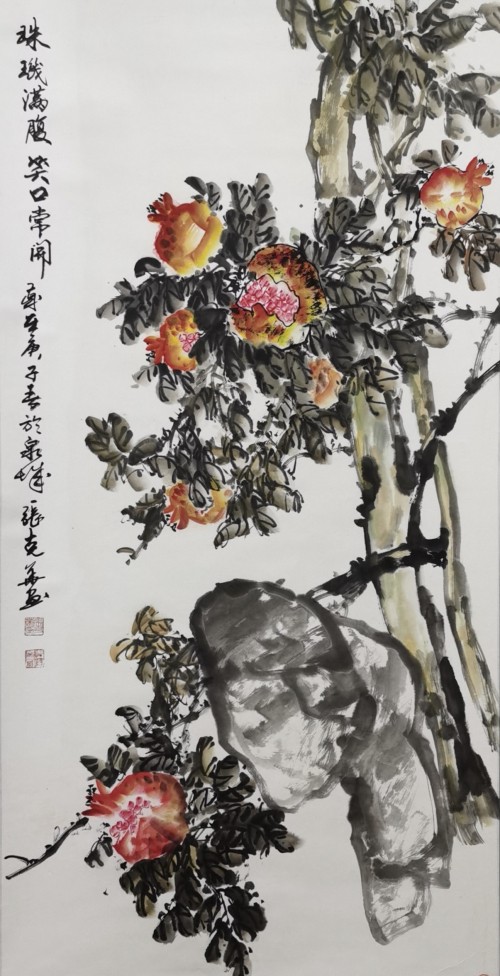 珠璣满腹 笑口常開 歲在庚子春於泉城 張克華画